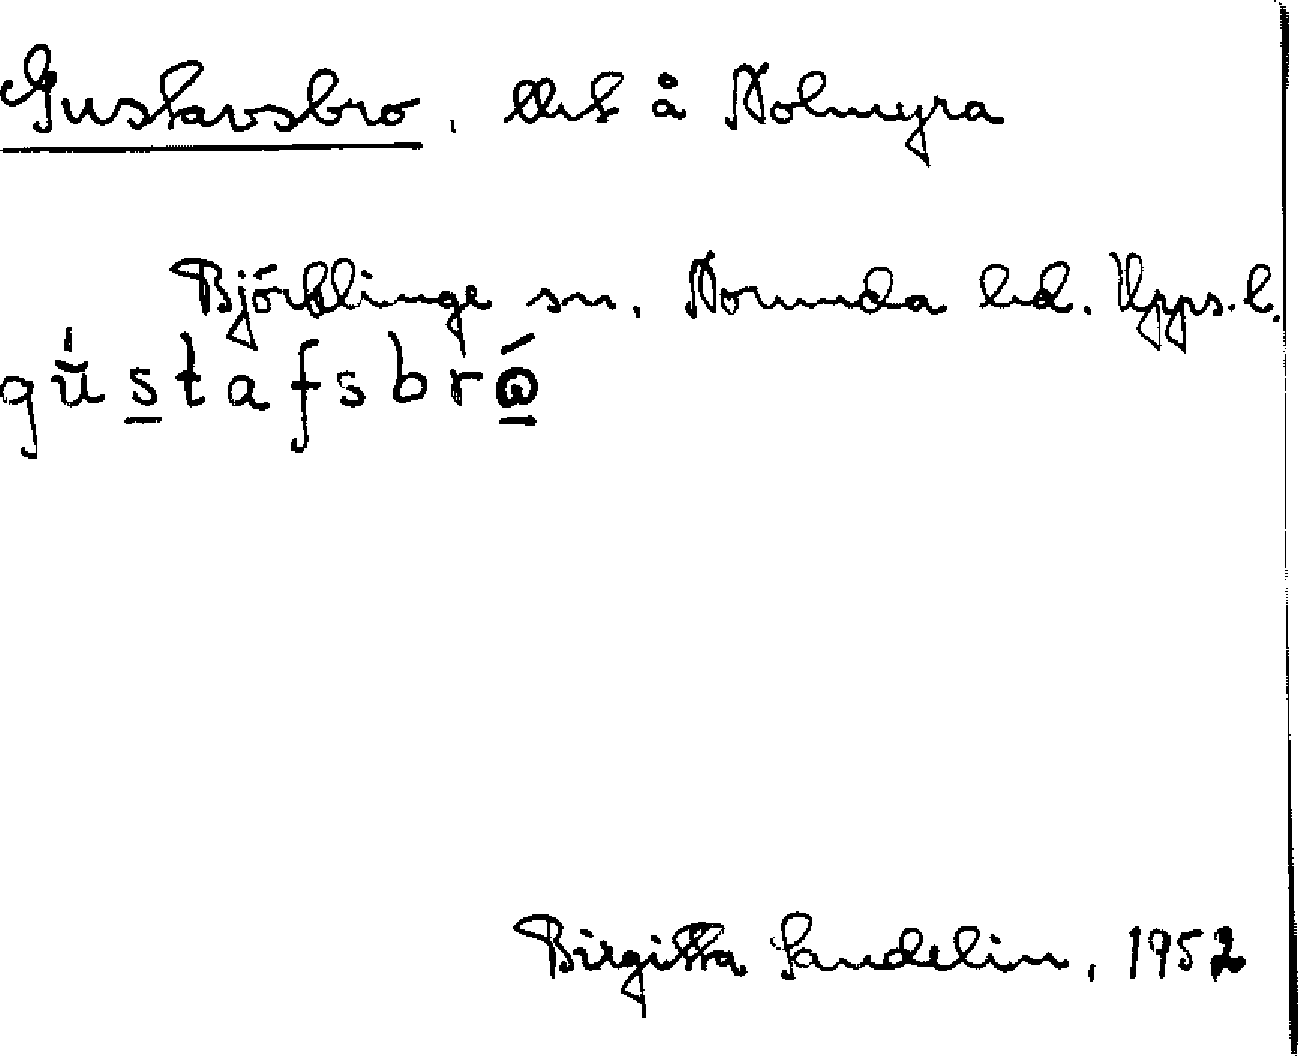 Gustavsbro, tkt å Nolmyra
Björklinge sn. Norunda hd. Upps. l.
gústafsbró
Birgitta Sandelin, 1952